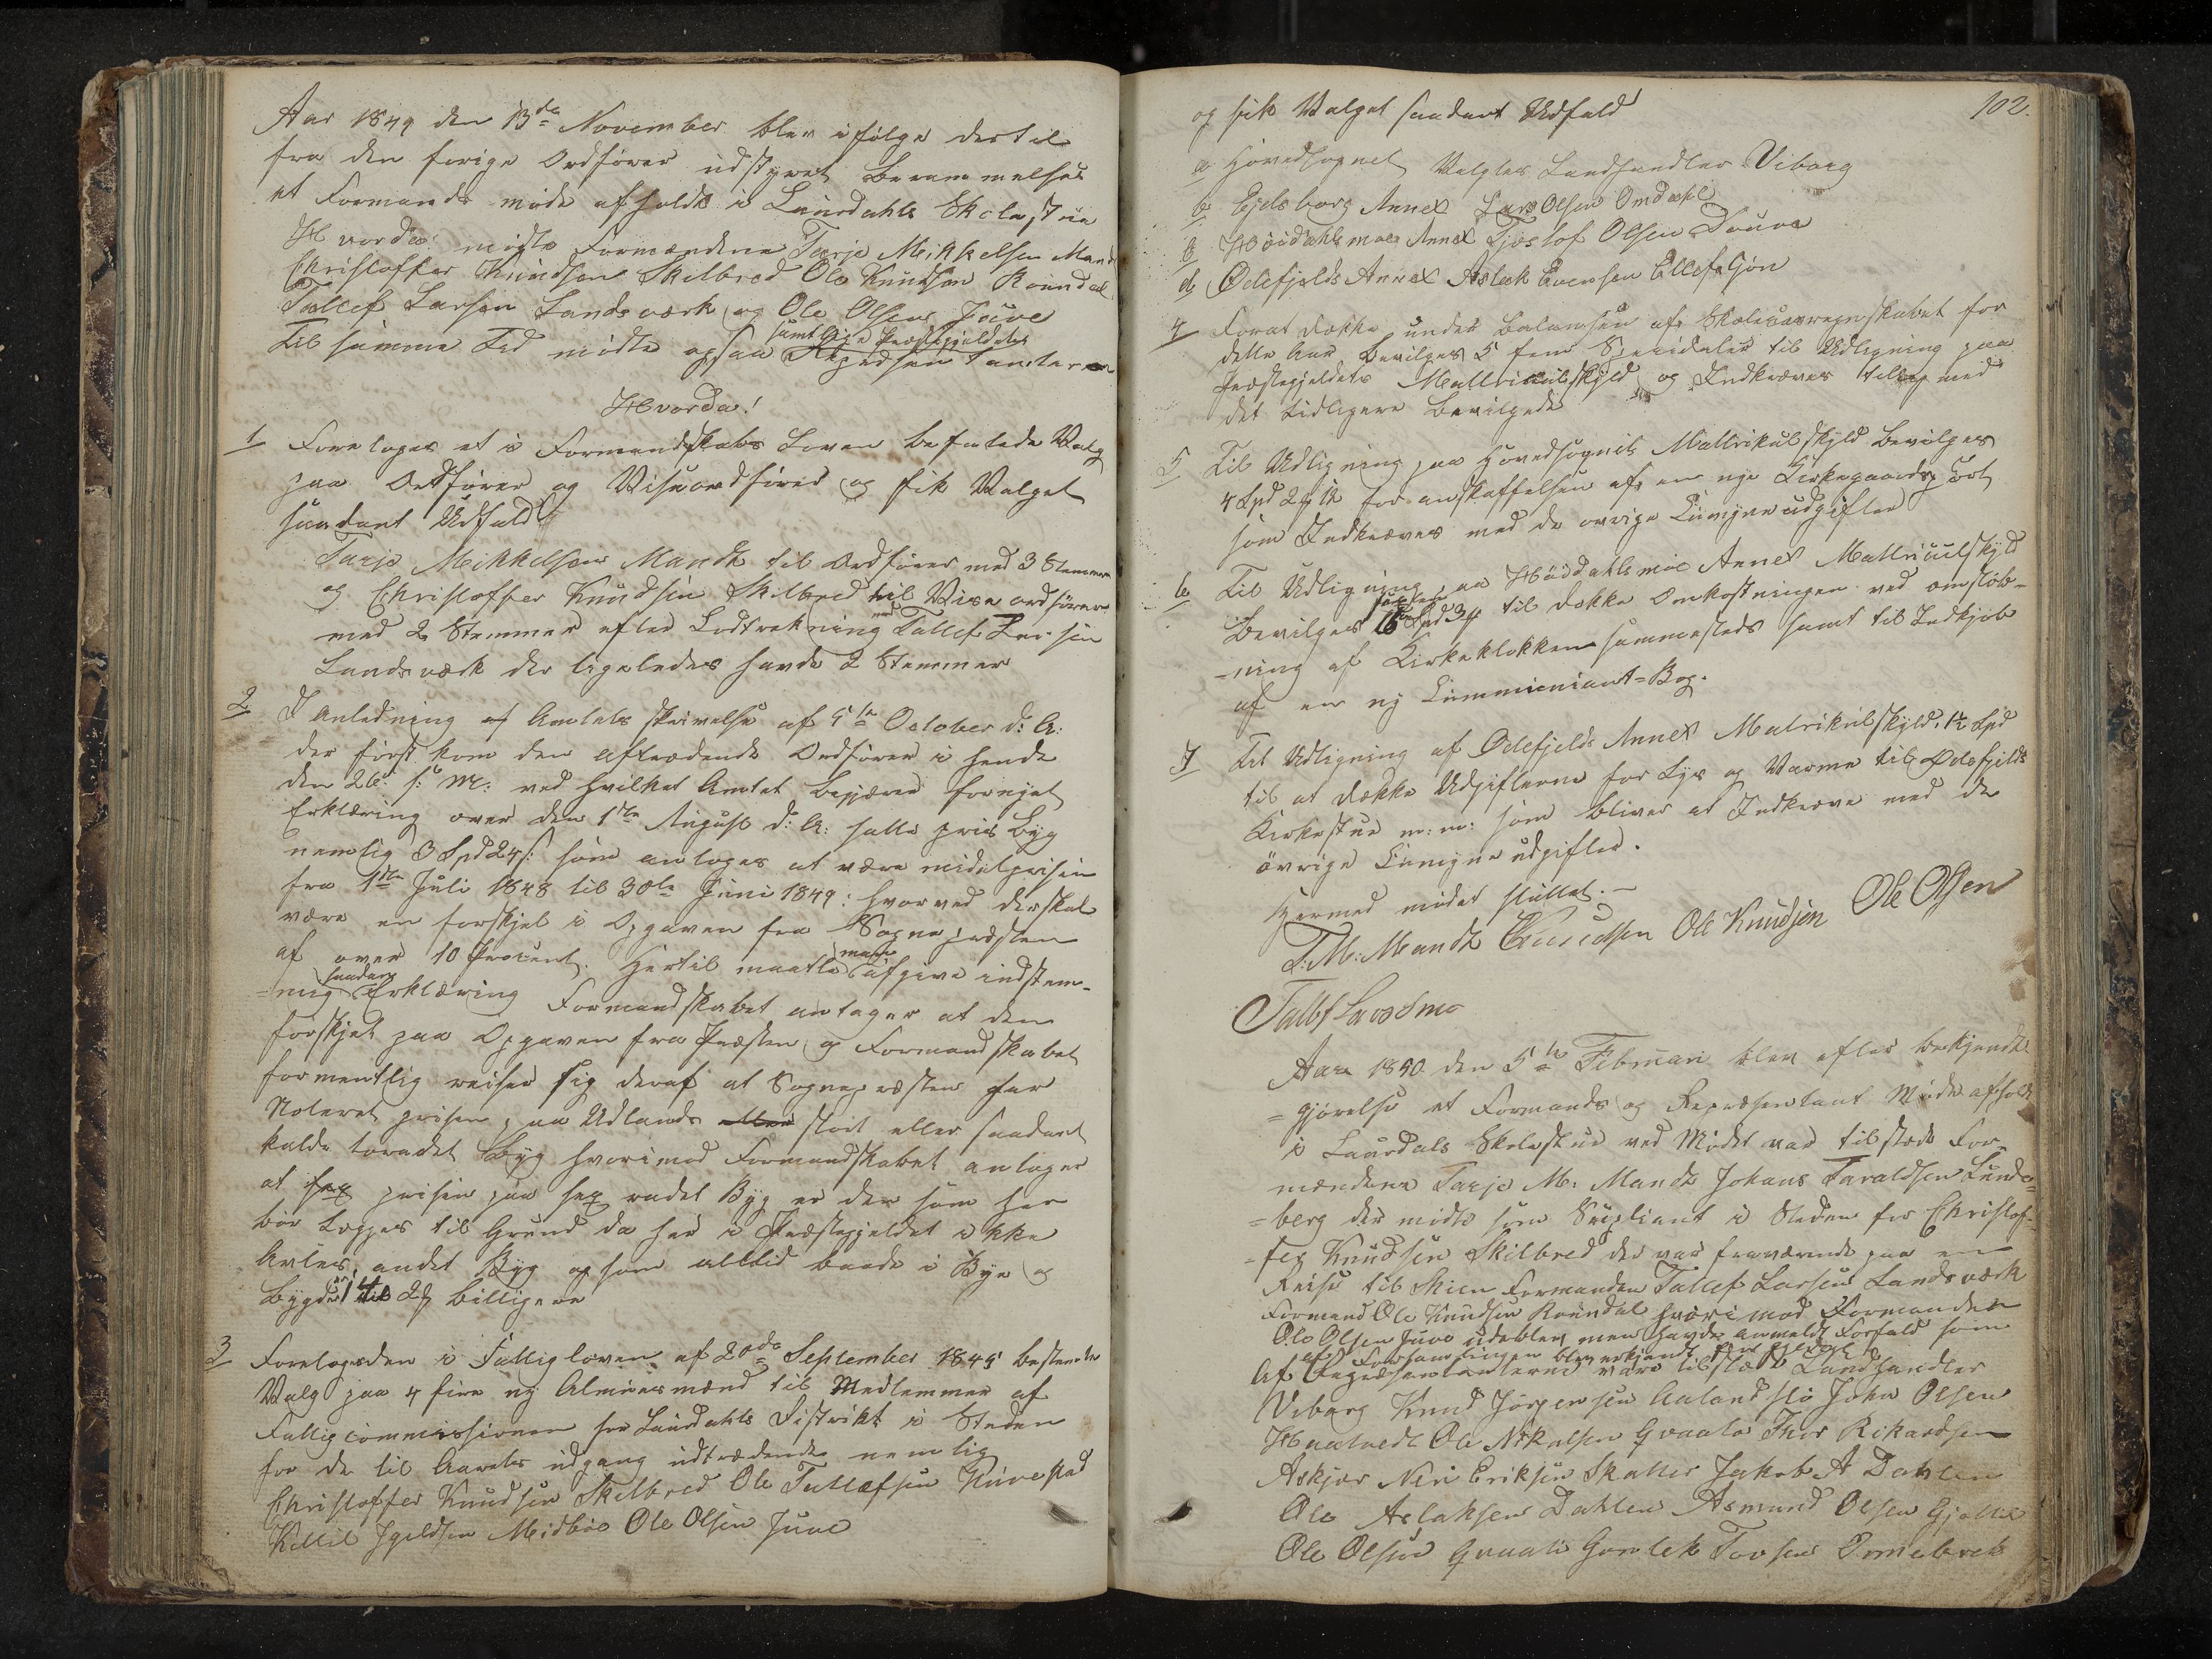 Aar 1849 den 13de November blev ifølge dertil
fra den forige Ordfører udstyret Berammelse
et Formands møde afholdt i Laurdahls Skolestue
Hvorda! mødte Formændene Tarje Mikkelsen Mandt
Christoffer Knudsen Skilbred Ole Knudsen Roundal
Tallef Larsen Landsværk og Ole Olsen Juve
samtlige Præstegjeldets
Til samme Tid mødte ogsaa
Hvorda!
1 Foretoges et i Formandskabs Loven befalede Valg
paa Ordfører og Viseordfører og fik Valget
saadant Udfald
Tarje Mikkelsen Mandt til Ordfører med 3 Stemmer
og Christoffer Knudsen Skilbred til Vise ordfører
med 2 Stemmer efter Lodtrekning med Tallef Larsen
Landsværk der ligeledes havde 2 Stemmer
2 I Anledning af Amtets skrivelse af 5te October d: A:
der først kom den aftrædende Ordfører i hende
den 26 s: M: ved hvilket Amtet begjærer fornyet
Erklæring over den 1ste August d: A: satte pris Byg
nemlig 3 Spd 24 s: som antoges at være midelprisen
fra 1ste Juli 1848 til 30te Juni 1849: hvorved der skal
være en forskjel i Opgaven fra Sognepræsten
af over 10 Procent. Hertil maatte man afgive indstem-
-mig saadan Erklæring Formandskabet antager at den
forskjel paa Opgaven fra Præsten og Formandskabet
formentlig reiser sig deraf at Sognepræsten har
Noteret prisen paa Udlands stort eller saadant
kalde toradet Byg hvorimod Formandskabet antager
at prisen paa sex radet Byg er den som her
bør lægges til Grund da her i Præstegjeldet ikke
Avles andet Byg og som altid baade i Bye og
Bygder er 1 til 2 billigere
3 Foretoges den i Fattigloven af 20de September 1845 bestemte
Valg paa 4 fire ny Almuesmænd til Medlemmer af
Fattigcommissionen for Laurdahls Distrikt i Steden
for de til Aarets udgang udtrædende nemlig
Christoffer Knudsen Skilbred Ole Tallefsen Kivestad
Kittil Jgeldsen Midbøe Ole Olsen Juve
102.
og fik Valget saadant Udfald
a Hovedsognet Valgtes Landhandler Viborg
b Ejdsborg Annex Lars Olsen Omdahl
c Høidahlsmoe Annex Tjøstof Olsen Douve
d Ødefjelds Annex Aslek Evensen Ellefsjøn
4 Forat dække under Balancen af Skolecasseregnskabet for
dette Aar bevilges 5 fem Speciedaler til Udligning paa
Præstegjeldets Mattrikulskyld og Indkræves tillig med
det tidligere bevilgede
5 Til Udligning paa Hovedsognets Mattrikulskyld bevilges
4 Spd 2 12 for anskaffelsen af en nye Kirkegaardsport
som Indkræves med de øvrige Comyneudgifter
6 Til Udligning paa Høidahlsmoe Annex Mattriculskyld
Bevilges 16 Spd 3 til dække Omkostningen ved omstøb-
-ning af Kirkeklokken sammesteds samt til Indkjøb
af en ny Communiant-Bog.
7 Til Udligning af Ødefjelds Annex Matrikulskyld, 1½ Spd
til at dække Udgifterne for Lys og Varme til Ødefjelds
Kirkestue m: m: som bliver at Indkræve med de
øvrige Comyneudgifter.
Hermed mødet sluttet.-
T: M: Mandt C Knudsen Ole Knudsen Ole Olsen
Tallef Larsen
Aar 1850 den 5te Februari blev efter bekjendt-
=gjørelse et Formands og Representant Møde afholdt
i Laurdals Skolestue ved Mødet var tilstæde For-
mændene Tarje M: Mandt Johans Taraldsen Lunde-
=berg der mødte som Supliant i Steden for Christof-
=fer Knudsen Skilbred der var fraværende paa en
Reise til Skien Formanden Tallef Larsen Landsværk
Formand Ole Knudsen Roundal hvorimod Formanden
Ole Olsen Juve udeblev men havde anmeldt Forfald som
af Forsamlingen blev erkjendt for gyldig
Af Representanterne vare tilstæde Landhandler
Viborg Knud Jørgensen Aalandslio John Olsen
Haatvedt Ole Nikulsen Qvaale Thor Rikardsen
Askjær Neri Eriksen Skatter Jakob A Dahlen
Ole Aslaksen Dahlen Asmund Olsen Gjellie
Ole Olsen Qvaale Gunlek Tovsen Ormebrek